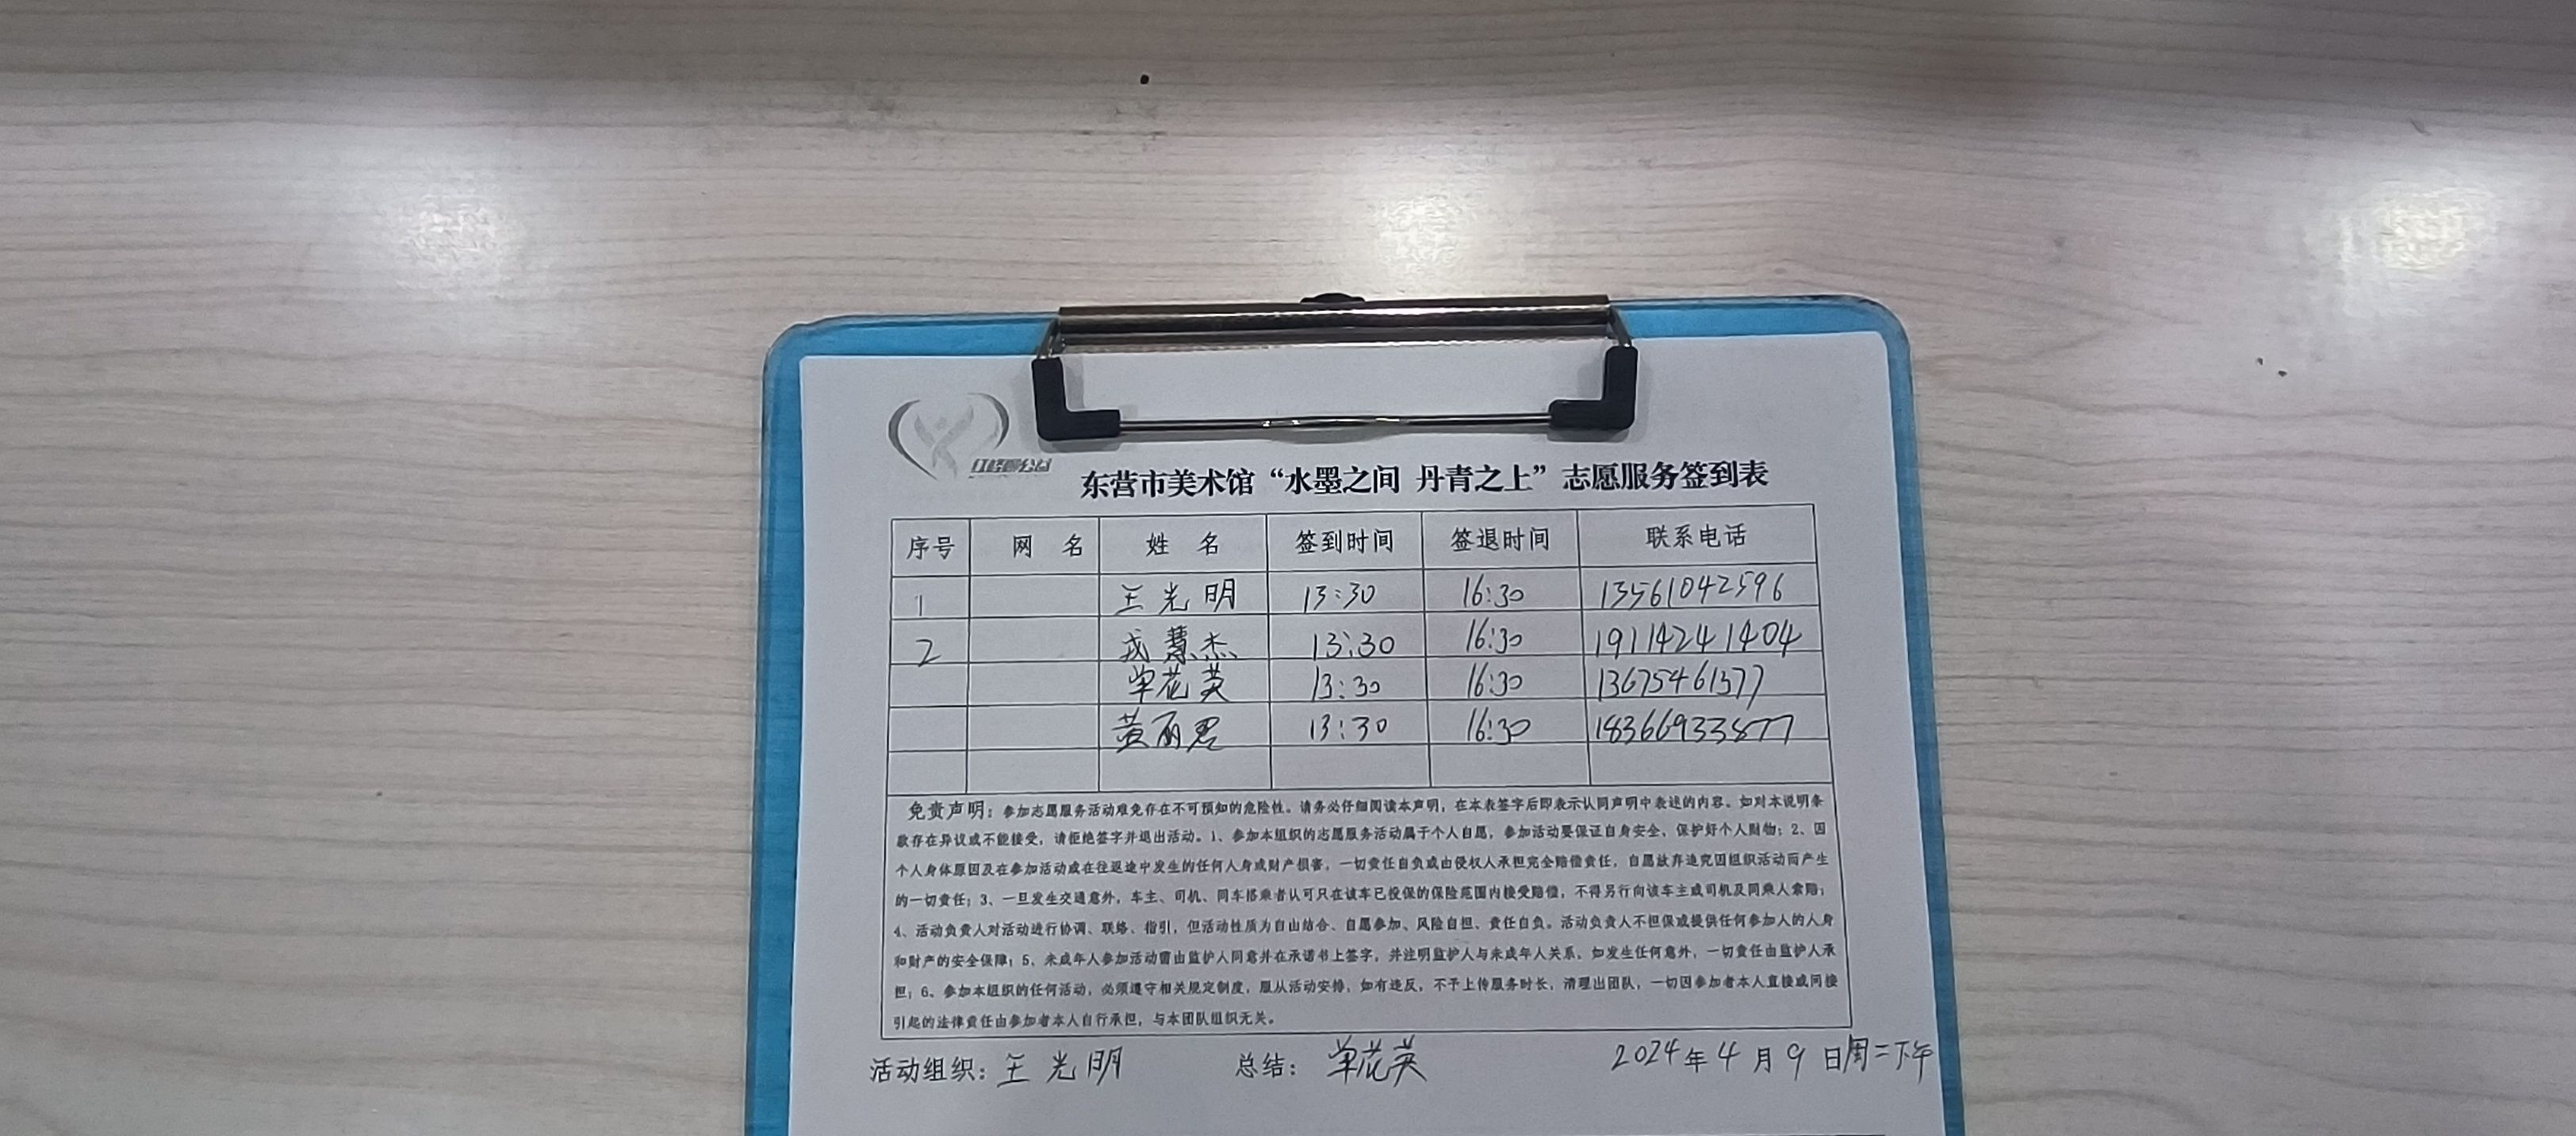 红楼圈公益
东营市美术馆“水墨之间 丹青之上”志愿服务签到表
序号 网 名 姓 名 签到时间 签退时间 联系电话
1 王光明 13:30 16:30 13561042596
2 戎慧杰 13:30 16:30 19114241404
单花英 13:30 16:30 13675461377
黄丽君 13:30 16:30 18366933877
免责声明：参加志愿服务活动难免存在不可预知的危险性。请务必仔细阅读本声明，在本表签字后即表示认同声明中表述的内容。如对本说明条
款存在异议或不能接受，请拒绝签字并退出活动。1、参加本组织的志愿服务活动属于个人自愿，参加活动要保证自身安全，保护好个人财物；2、因
个人身体原因及在参加活动或在往返途中发生的任何人身或财产损害，一切责任自负或由侵权人承担完全赔偿责任，自愿放弃追究因组织活动而产生
的一切责任；3、一旦发生交通意外，车主、司机、同车搭乘者认可只在该车已投保的保险范围内接受赔偿，不得另行向该车主或司机及同乘人索赔；
4、活动负责人对活动进行协调、联络、指引，但活动性质为自由结合、自愿参加、风险自担、责任自负。活动负责人不担保或提供任何参加人的人身
和财产的安全保障；5、未成年人参加活动需由监护人同意并在承诺书上签字，并注明监护人与未成年人关系、如发生任何意外，一切责任由监护人承
担；6、参加本组织的任何活动，必须遵守相关规定制度，服从活动安排，如有违反，不予上传服务时长，清理出团队，一切因参加者本人直接或间接
引起的法律责任由参加者本人自行承担，与本团队组织无关。
活动组织：王光明 总结：单花英 2024年4月9日周二下午